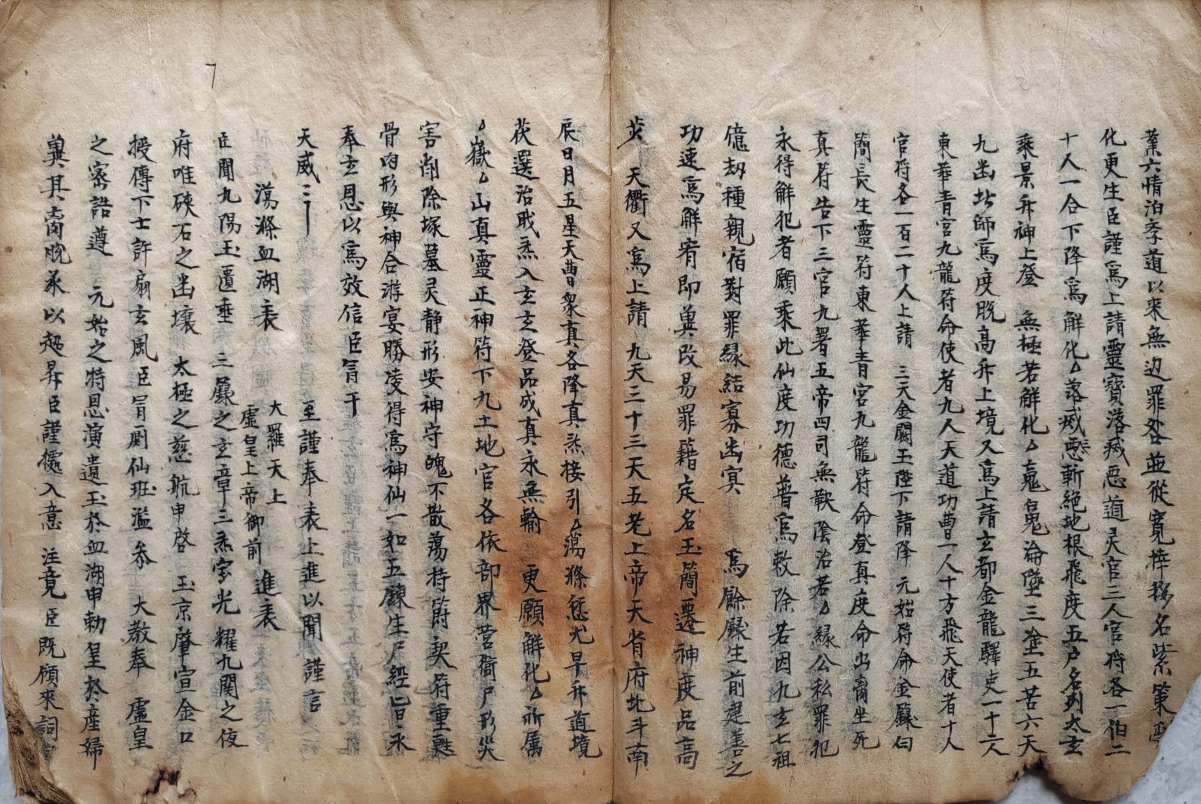 業六情泊季道以來無边罪咎並從寬梓移名紫策
化更生臣謹爲上請靈寶落滅惡道灵官三人官将各一伯二
十人一合下降爲解化厶落滅惡斬絶地根飛度五户名列太玄
乘景升神上登 無極若解化厶亮鬼淪墮三塗五苦六天
九幽北帥爲度脱高升上境又爲上請玄都金龍驛吏一十二人
東華青宮九龍符命使者九人天道功曹一人十方飛天使者十人
官将各一百二十人上請 三天金闕玉陛下請降 元始符命金籙白
簡長生靈符東華青宮九龍符命登真度命出离生死
真符告下三官九署五帝四司無鞅陰治若厶緣公私罪犯
永得解犯者願乘此仙度功德普爲救除若因九玄七祖
億劫種親宿對罪緣結寡幽冥 爲除厭生前建善之
功速爲解宥即冀改易罪籍定名玉簡遷神度品高
炎 天衢又爲上請 九天三十三天五老上帝天省府北斗南
辰日月五星天曹衆真各降真炁接引厶蕩滌愆尤早升道境
茯選治戝炁入玄玄登品成真永無輪 更願解化厶所属
厶嶽厶山真靈正神符下九土地官各依部界营衛尸形災
害削除塚墓灵静形安神守魄不散蕩持尉契符重甦
骨肉形與神合游宴勝凌得爲神仙一如五鍊生尸經旨永
奉玄恩以爲效信臣冐干
天威二二 至謹奉表上進以聞 謹言
蕩滌血湖表 大羅天上虛皇上帝御前 進表
臣聞九陽玉匱垂 三籙之玄章三炁宝光 耀九関之伎
府唯硤石之幽壤 太極之慈航申啓 玉京肇宣金口
授傳下士許扇玄風臣冐厠仙班濫叅 大教奉 虛皇
之密語遵 元始之特恩演遺玉於血湖申勅呈於産婦
冀其南晚承以起昇臣謹懷入意 注竟臣既願來詞